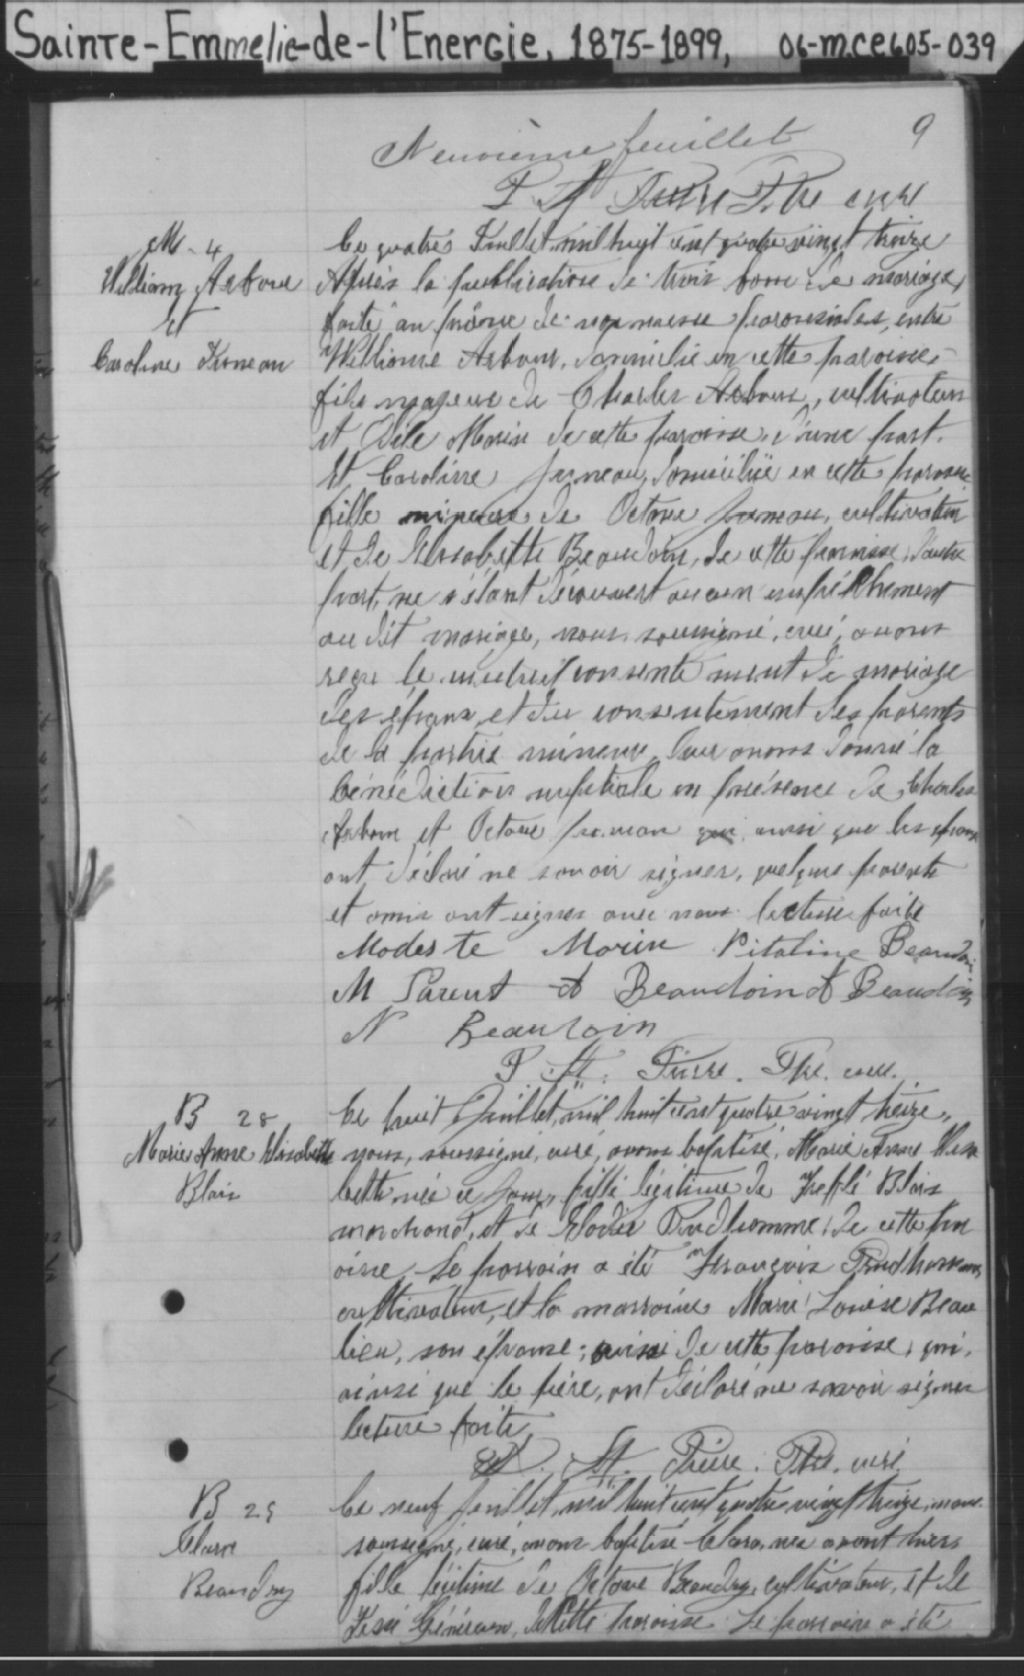 Sainte-Emmelie-de-l'Energie, 1875-1899, 06-M.CE605-039
9
Neuvième feuillet
P St Pierre Ptre curé
M - 4
William Arbour
et
Caroline Juneau
Ce quatre Juillet mil huit cent quatre vingt treize
Après la publication de trois bans de mariage,
faite au prône de nos messes paroissiales, entre
William Arbour, domicilié en cette paroisse
fils majeur de Charles Arbour, cultivateur
et Odile Morin de cette paroisse, d'une part.
Et Caroline Juneau, domiciliée en cette paroisse
fille mineure de Octave Juneau, cultivateur
et de Elisabette Beaudoin, de cette paroisse, d'autre
part, ne s'étant découvert aucun empêchement
au dit mariage, nous, soussigné, curé, avons
reçu le mutuel consentement de mariage
des époux, et du consentement des parents
de la partie mineure, leur avons donné la
bénédiction nuptiale en présence de Charles
Arbour et Octave Juneau qui ainsi que les époux
ont déclaré ne savoir signer, quelques parents
et amis ont signer avec nous. lecture faite
Modeste Morin Vitaline Beaudoin
M Parent A Beaudoin A Beaudoin
N Beaudoin
P. St. Pierre. Ptre. curé.
B 28
Marie Anne Elisabette
Blais
Ce huit Juillet, mil huit cent quatre vingt treize,
nous, soussigné, curé, avons baptisé, Marie Anne Elisa
bette née ce jour, fille légitime de Trefflé Blais
marchand, et de Elodie Prudhomme, de cette par
oisse. Le parrain a été François Prudhomme,
cultivateur, et la marraine Marie Louise Beau
lieu, son épouse; aussi de cette paroisse, qui,
ainsi que le père, ont déclaré ne savoir signer
lecture faite
P. St. Pierre. Ptre. curé
B 29
Clara
Beaudry
Ce neuf Juillet, mil huit cent quatre vingt treize, nous
soussigné, curé, avons baptisé Clara, née avant hiers
fille légitime de Octave Beaudry, cultivateur, et de
Généreux, de cette paroisse. Le parrain a été